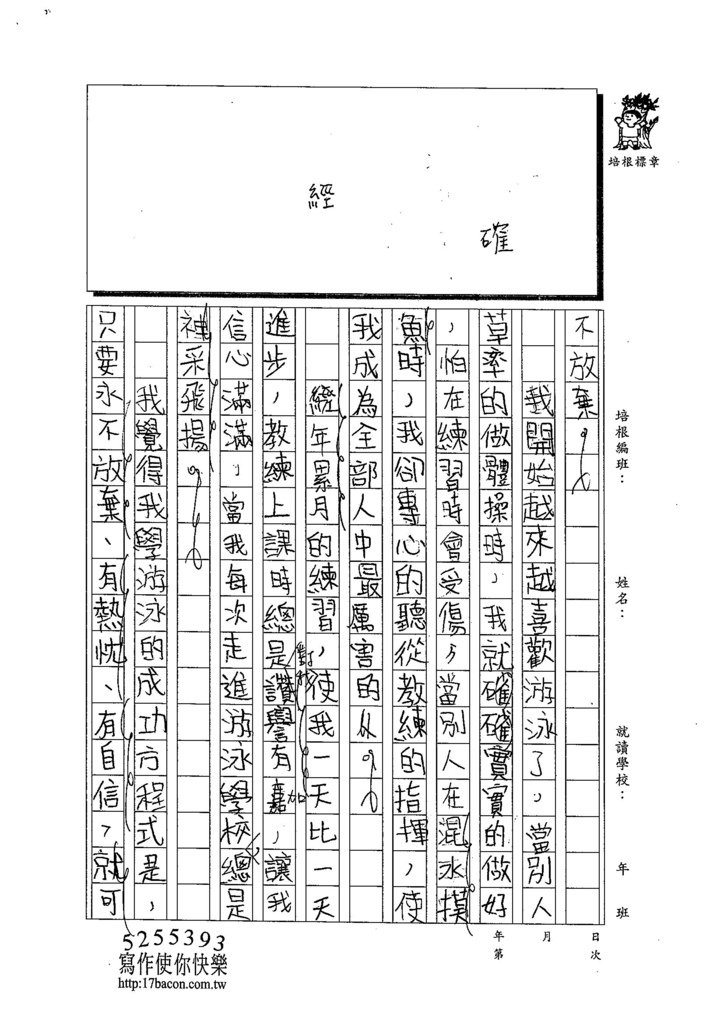 經
確
培根標章
不放棄。
我開始越來越喜歡游泳了，當別人
草率的做體操時，我就確確實實的做好
，怕在練習時會受傷，當別人在混水摸
魚時，我卻專心的聽從教練的指揮，使
我成為全部人中最厲害的人。
經年累月的練習，使我一天比一天
進步，教練上課時總是對我讚譽有嘉加，讓我
信心滿滿，當我每次走進游泳學校總是
神采飛揚。
我覺得我學游泳的成功方程式是，
只要永不放棄、有熱忱、有自信，就可
培根編班：
姓名：
就讀學校：
年 班
年 月 日
第 次
5255393
寫作使你快樂
http:17bacon.com.tw